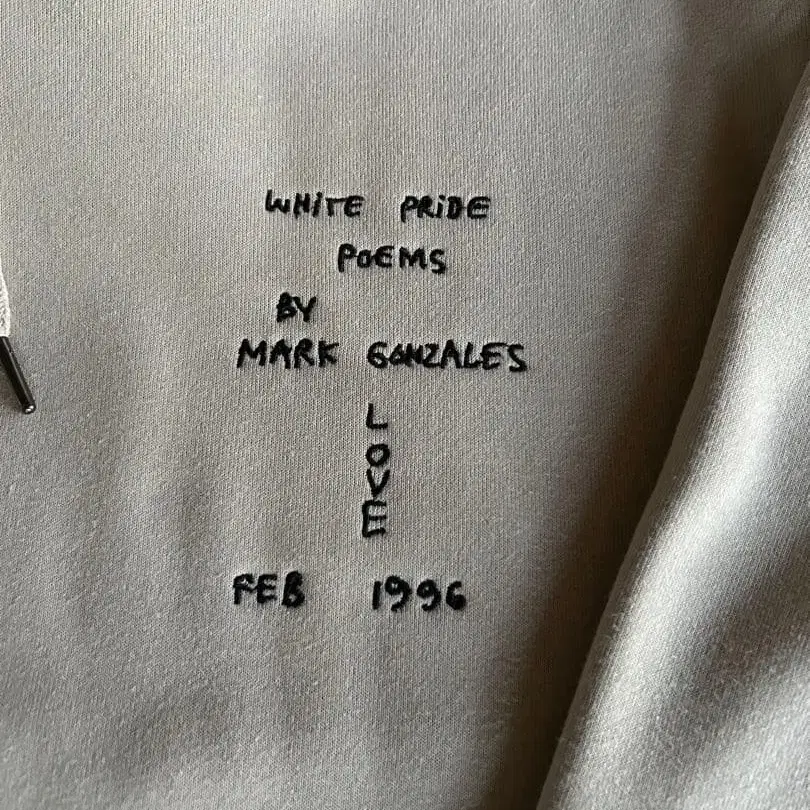 WHITE PRIDE
POEMS
BY
MARK GONZALES
L
O
V
E
FEB 1996